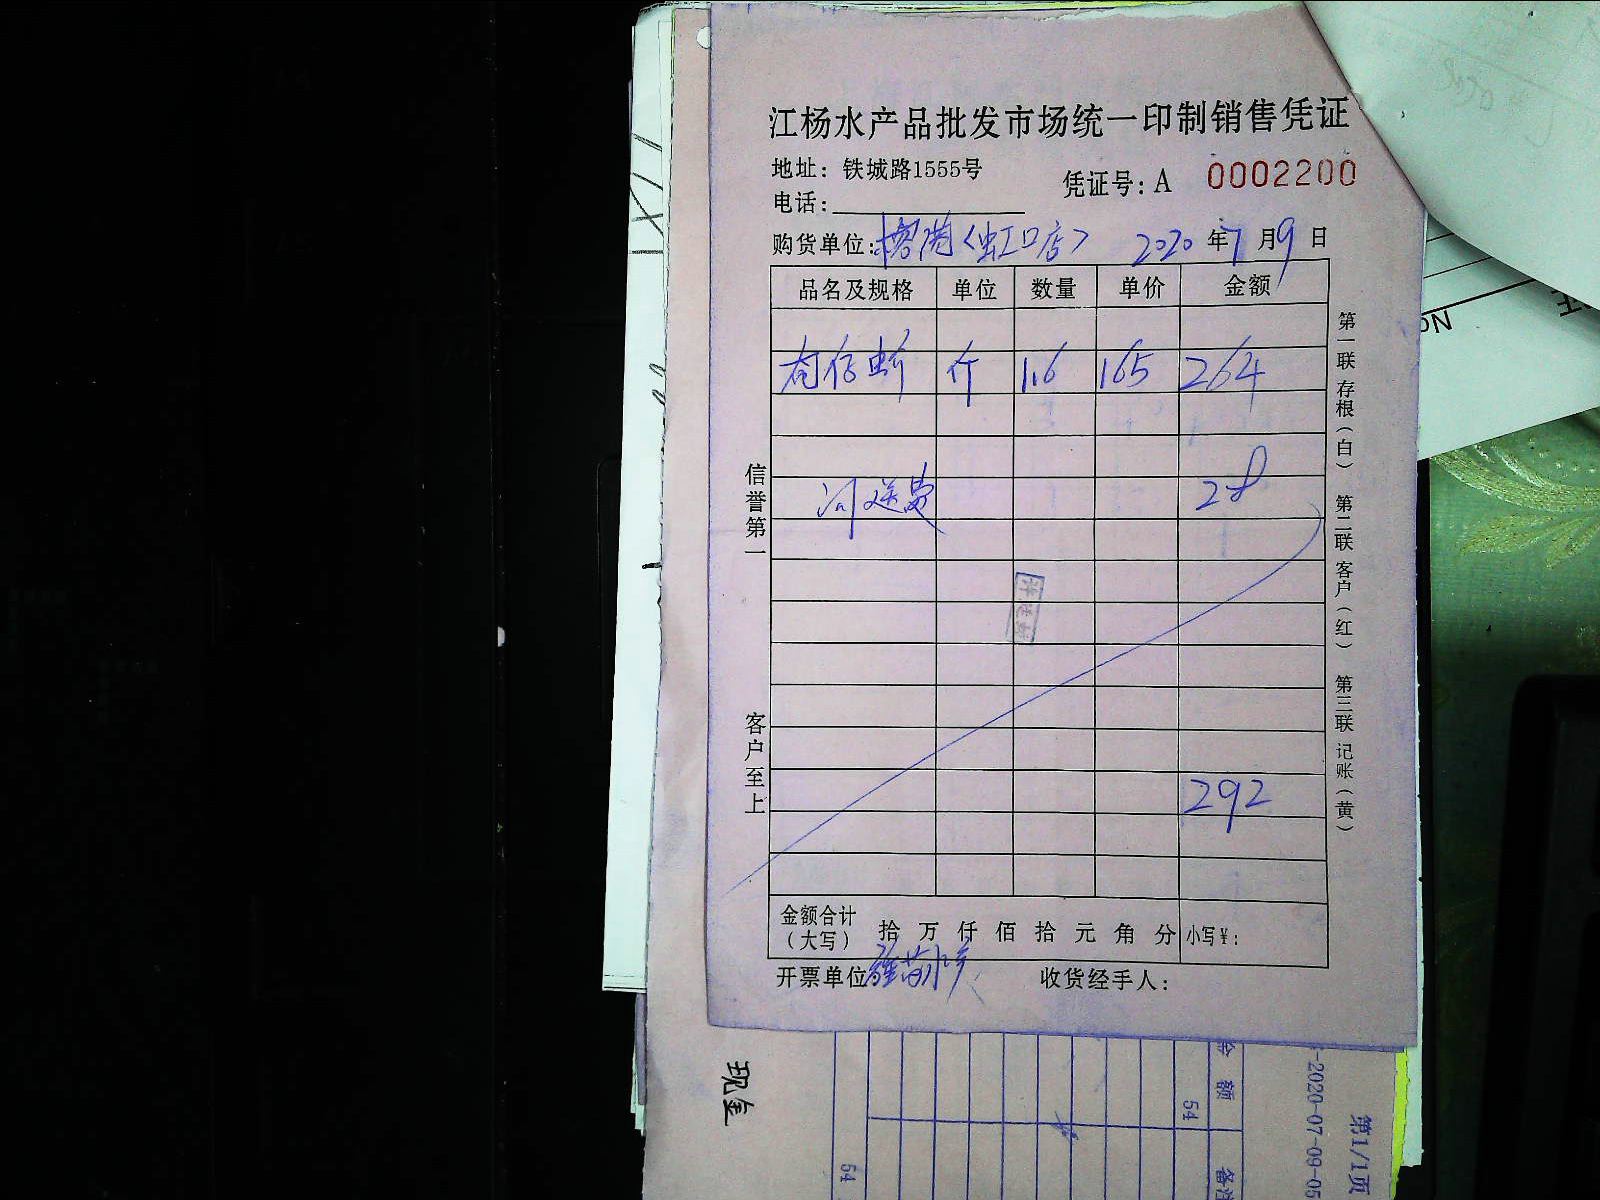 江杨水产品批发市场统一印制销售凭证
地址：铁城路1555号
凭证号：A 0002200
电话：
购货单位：榕港〈虹口店〉 2020年7月9日
品名及规格 单位 数量 单价 金额
斤 1.6 165 264
送 28
292
金额合计（大写） 拾 万 仟 佰 拾 元 角 分 小写￥：
开票单位
收货经手人：
信誉第一
客户至上
第一联 存根（白） 第二联 客户（红） 第三联 记账（黄）
现金
金额
54
备注
54
-2020-07-09-05
第1/1页
No